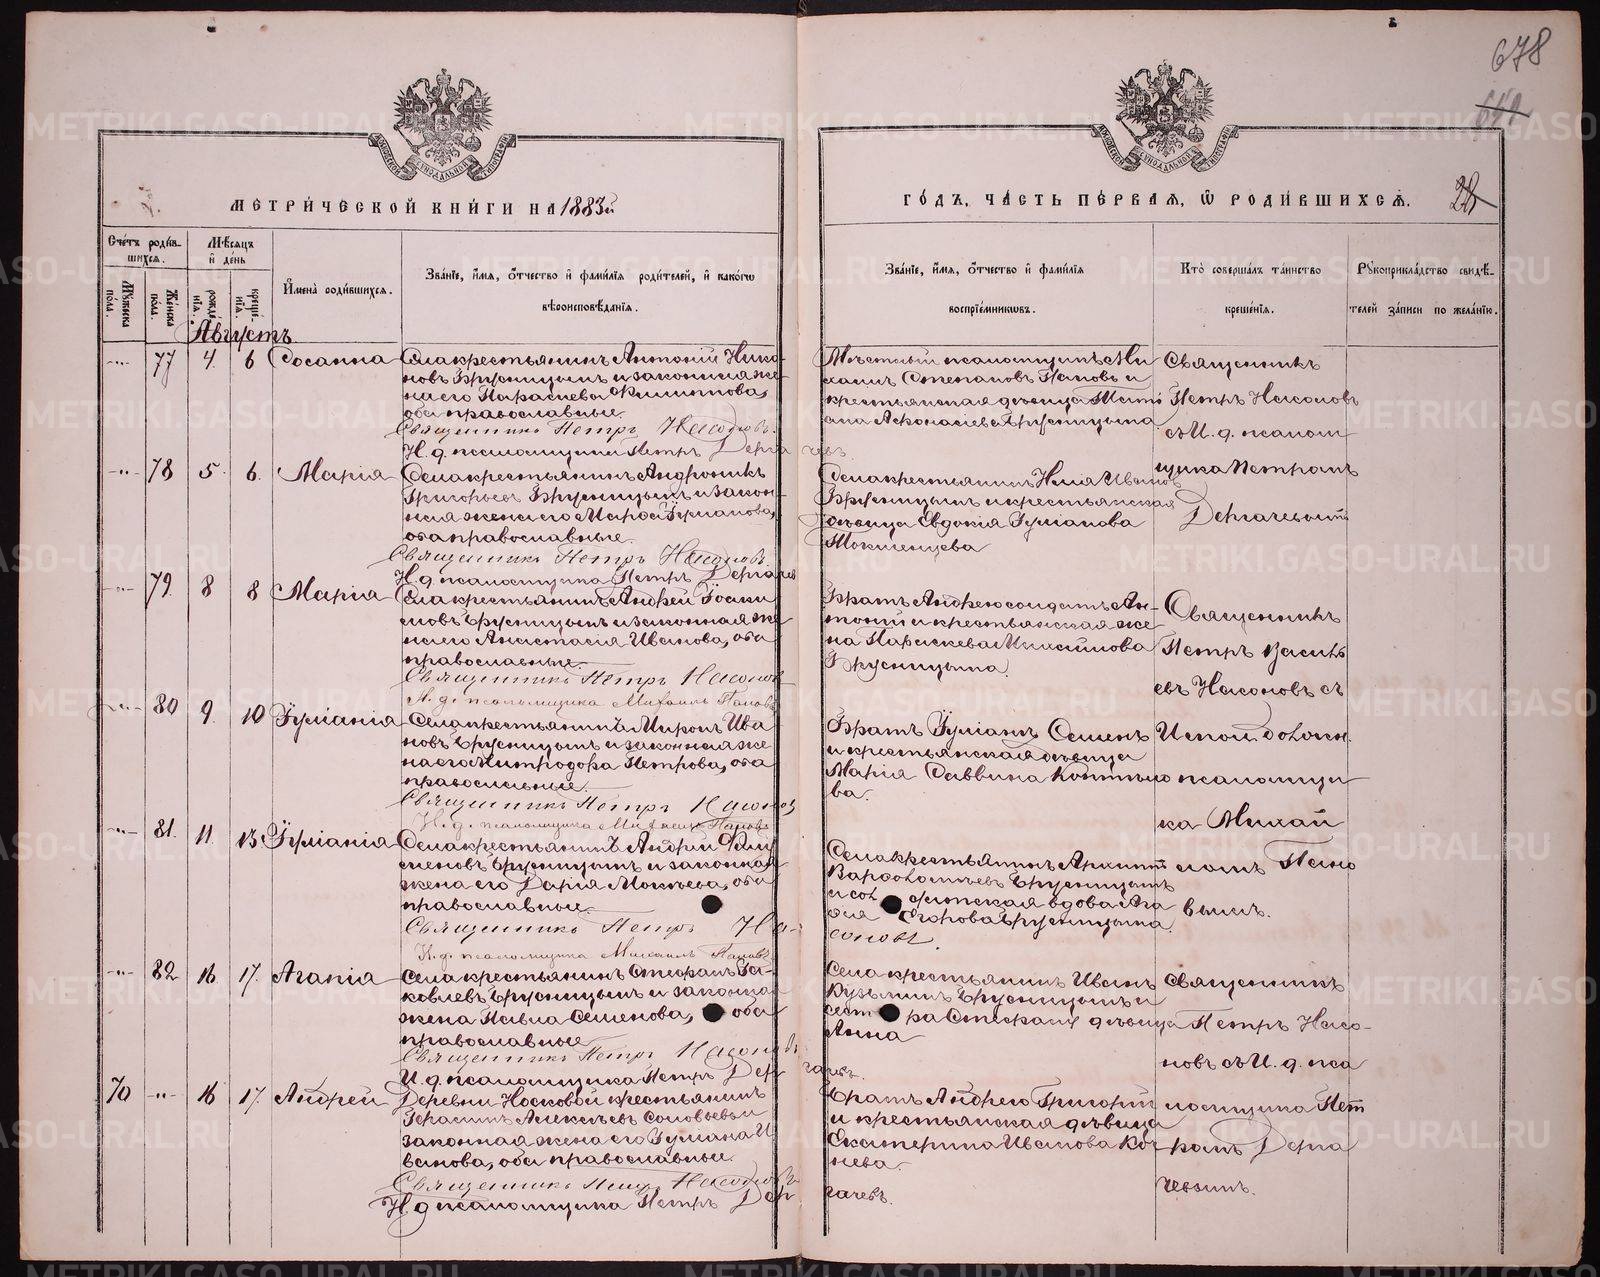 678
28
МЕТРИЧЕСКОЙ КНИГИ НА 1883й
ГОДЪ, ЧАСТЬ ПЕРВАЯ, Ѿ РОДИВШИХСЯ.
Счетъ родив-
шихся.
Мѣсяцъ
и день
Мужеска пола.
Женска пола.
рожде-
нія.
креще-
нія.
Имена родившихся.
Званіе, имя, отчество и фамилія родителей, и какого
вѣроисповѣданія.
Званіе, имя, отчество и фамилія
воспріемниковъ.
Кто совершалъ таинство
крещенія.
Рукоприкладство свидѣ-
телей записи по желанію.
Августъ
77 4. 6 Сосанна
Села крестьянинъ Антоній Нико-
новъ Брусницынъ и законная же-
на его Параскева Филиппова,
оба православные.
Священникъ Петръ Насоновъ.
И. д. псаломщика Петръ Дерга чевъ
Мѣстный псаломщикъ Ми-
хаилъ Степановъ Поповъ и
крестьянская дѣвица
Аѳанасіева Брусницына
Священникъ
Петръ Насоновъ
съ И. д. псалом
щика Петромъ
Дергачевымъ
78 5. 6. Марія
Села крестьянинъ Андроникъ
Григорьевъ Брусницынъ и закон-
ная жена его Марѳа Іуліанова,
оба православные.
Священникъ Петръ Насоновъ.
И. д. псаломщика Петръ Дергачев
Села крестьянинъ Иванов
Брусницынъ и крестьянская
дѣвица Евдокія Іуліанова
Токменцева
79. 8 8 Марія
Села крестьянинъ Андрей Іоаки
мовъ Брусницынъ и законная же
на его Анастасія Иванова, оба
православные.
Священникъ Петръ Насонов
И. д. псаломщика Михаилъ Поповъ
Братъ Андрею солдатъ Ан-
тоній и крестьянская же
на Параскева
Брусницына.
Священникъ
Петръ Василь
евъ Насоновъ съ
Исполн.
псаломщи
ка Михаи
ломъ Попо
вымъ.
80 9. 10 Іуліанія
Села крестьянинъ Миронъ Ива
новъ Брусницынъ и законная же
на его Митродора Петрова, оба
православные.
Священникъ Петръ Насонов
И. д. псаломщика Михаилъ Поповъ
Братъ Іуліаніи Семенъ
и крестьянская дѣвица
Марія Саввина
ва.
81. 11. 13 Іуліанія
Села крестьянинъ Андрей
Брусницынъ и законная
жена его Дарія Мокѣева, оба
православные.
Священникъ Петръ На-
соновъ.
И. д. псаломщика Михаилъ Поповъ
Села крестьянинъ
Варѳоломѣевъ Брусницынъ
и сол датская вдова Ага
ѳія Егорова Брусницына.
82 16 17. Агапія
Села крестьянинъ Стефанъ Іа-
ковлевъ Брусницынъ и законная
жена Павла Семенова, оба
православные
Священникъ Петръ Насоновъ
И. д. псаломщика Петръ Дер гачевъ.
Села крестьянинъ Иванъ
Кузьминъ Брусницынъ и
сест ра Стефану дѣвица
Анна
Священникъ
Петръ Насо-
новъ съ И. д. пса
ломщика Пет
ромъ Дерга
чевымъ.
70 16 17. Андрей
Деревни Носковой крестьянинъ
Герасимъ Алексѣевъ Соловьевъ и
законная жена его Іуліана И
ванова, оба православные.
Священникъ Петръ Насоновъ
И. д. псаломщика Петръ Дер гачевъ.
Братъ Андрею Григорій
и крестьянская дѣвица
Екатерина Иванова Коч
нева.